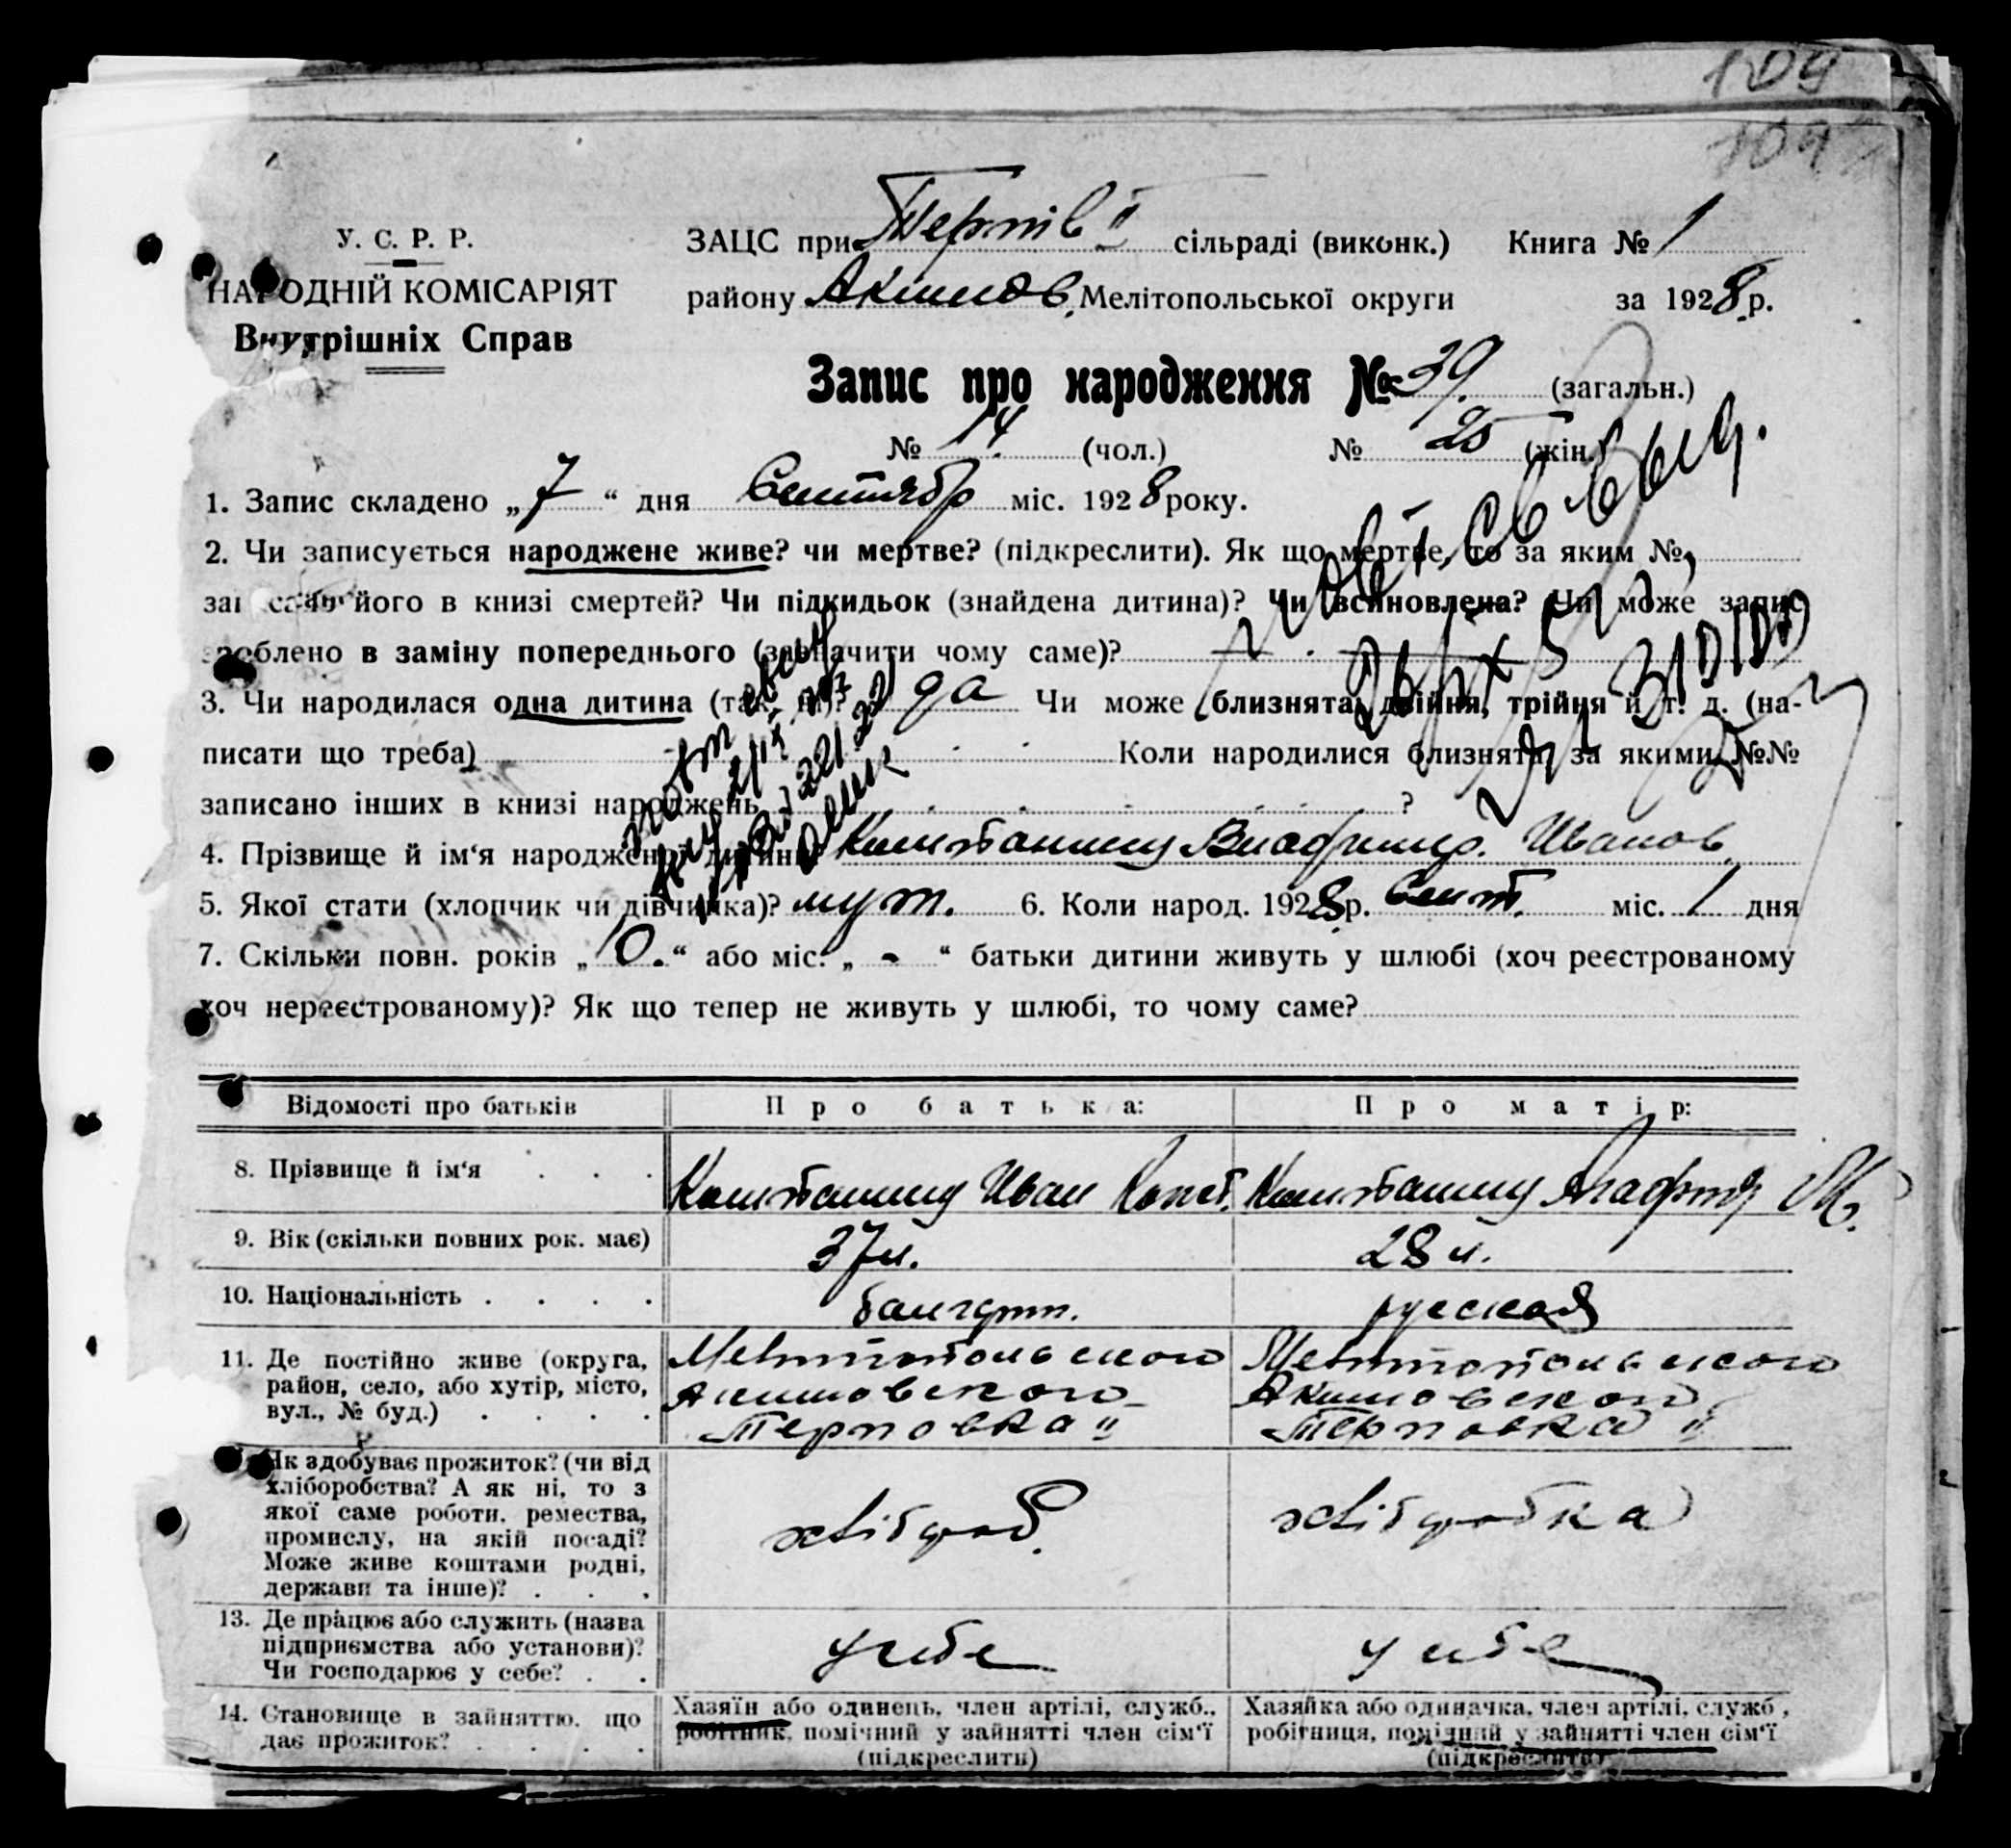 109
109
У. С. Р. Р.
НАРОДНІЙ КОМІСАРІЯТ
Внутрішніх Справ
ЗАЦС при Терпів II сільраді (виконк.) Книга № 1
району Акимов. Мелітопольської округи за 1928 р.
Запис про народження № 39. (загальн.)
№ 14. (чол.) № 25 (жін.)
1. Запис складено „7“ дня Сентябр міс. 1928 року.
2. Чи записується народжене живе? чи мертве? (підкреслити). Як що мертве, то за яким №
його в книзі смертей? Чи підкидьок (знайдена дитина)? Чи всиновлена? Чи може запис
зроблено в заміну попереднього (зазначити чому саме)?
3. Чи народилася одна дитина (так, ні)? да Чи може близнята, двійня, трійня й т. д. (на-
писати що треба) Коли народилися близнята, за якими №№
записано інших в книзі народжень ?
4. Прізвище й ім‘я народженої дитини Владимир. Иванов.
5. Якої стати (хлопчик чи дівчинка)? муж. 6. Коли народ. 1928 р. Сент. міс. 1 дня
7. Скільки повн. років „10.“ або міс. „-“ батьки дитини живуть у шлюбі (хоч реєстрованому
хоч нереєстрованому)? Як що тепер не живуть у шлюбі, то чому саме?
Відомості про батьків Про батька: Про матір:
8. Прізвище й ім‘я Иван Конст.
9. Вік (скільки повних рок. має) 37 л. 28 л.
10. Національність болгарин. русская
11. Де постійно живе (округа, район, село, або хутір, місто, вул., № буд.)
Мелитопольского Мелитопольского
Акимовского Акимовского
Терповка II Терповка II
Як здобуває прожиток? (чи від
хліборобства? А як ні, то з
якої саме роботи, ремества,
промислу, на якій посаді?
Може живе коштами родні,
держави та інше)?
хлібороб. хліборобка
13. Де працює або служить (назва
підприємства або установи)?
Чи господарює у себе?
у себе у себе
14. Становище в зайняттю, що
дає прожиток?
Хазяїн або одинець, член артілі, служб.,
робітник, помічний у зайнятті член сім‘ї
(підкреслить)
Хазяйка або одиначка, член артілі, служб.,
робітниця, помічний у зайнятті член сім‘ї
(підкреслить)